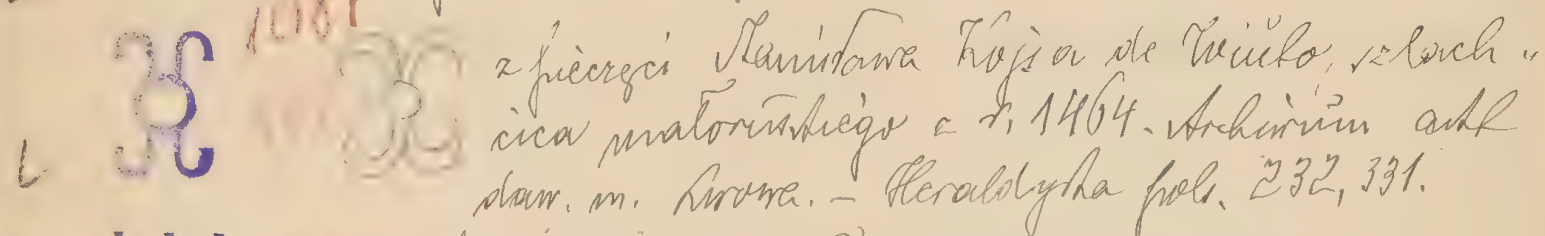 z pieczęci Stanisława Kojsa de Wiuto, szlach„
cica małoruskiego z r. 1464. Archiwum akt
daw. m. Lwowa. – Heraldyka pols. 232, 331.